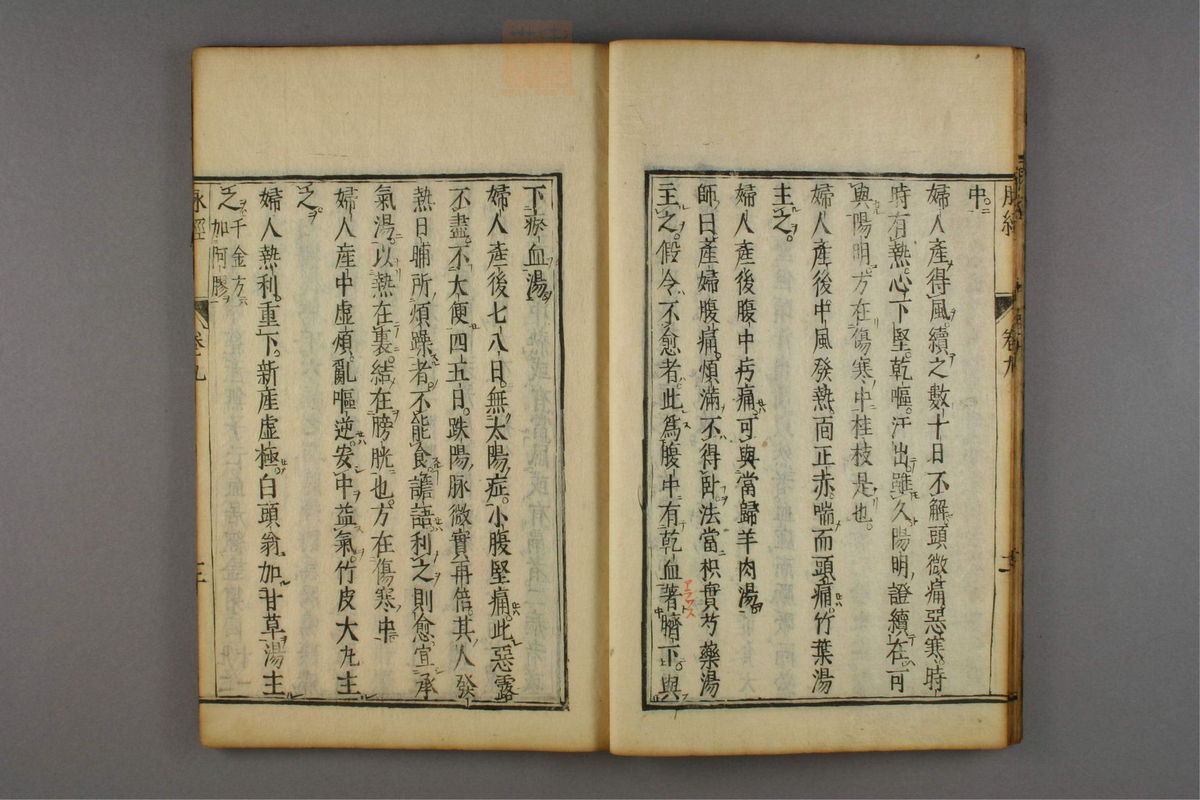 中
婦人產得風續之數十日不解頭微痛惡寒時
時有熱心下堅乾嘔汗出雖久陽明證續在可
與陽明方在傷寒中桂枝是也
婦人產後中風發熱面正赤喘而頭痛竹葉湯
主之
婦人產後腹中㽲痛可與當歸羊肉湯
師曰產婦腹痛煩滿不得臥法當枳實芍藥湯
主之假令不愈者此為腹中有乾血著臍下與
下瘀血湯
婦人產後七八日無太陽症小腹堅痛此惡露
不盡不大便四五日趺陽脉微實再倍其人發
熱日晡所煩躁者不能食譫語利之則愈宜承
氣湯以熱在裏結在膀胱也方在傷寒中
婦人産中虛煩亂嘔逆安中益氣竹皮大丸主
之
婦人熱利重下新産虛極白頭翁加甘草湯主
之千金方加阿膠
脉經
卷九